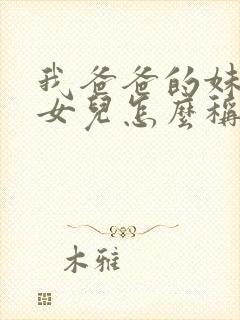 我爸爸的妹
女兒怎麼稱
木雅